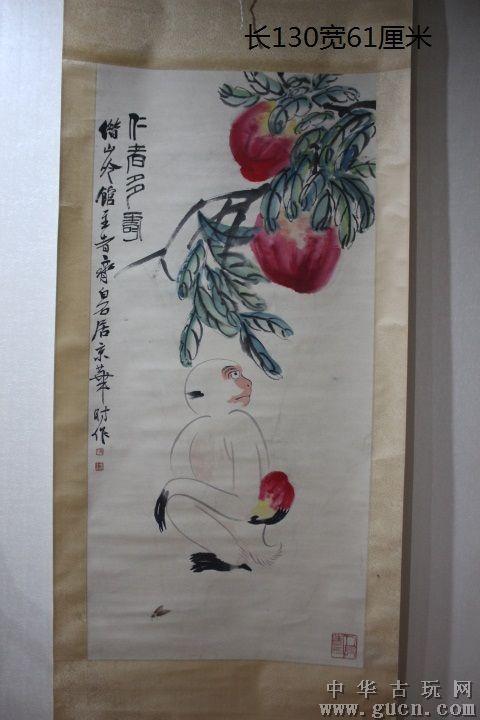 长130宽61厘米
仁者多壽
借山吟館主者齊白石居京華时作
中华古玩网
www.gucn.com